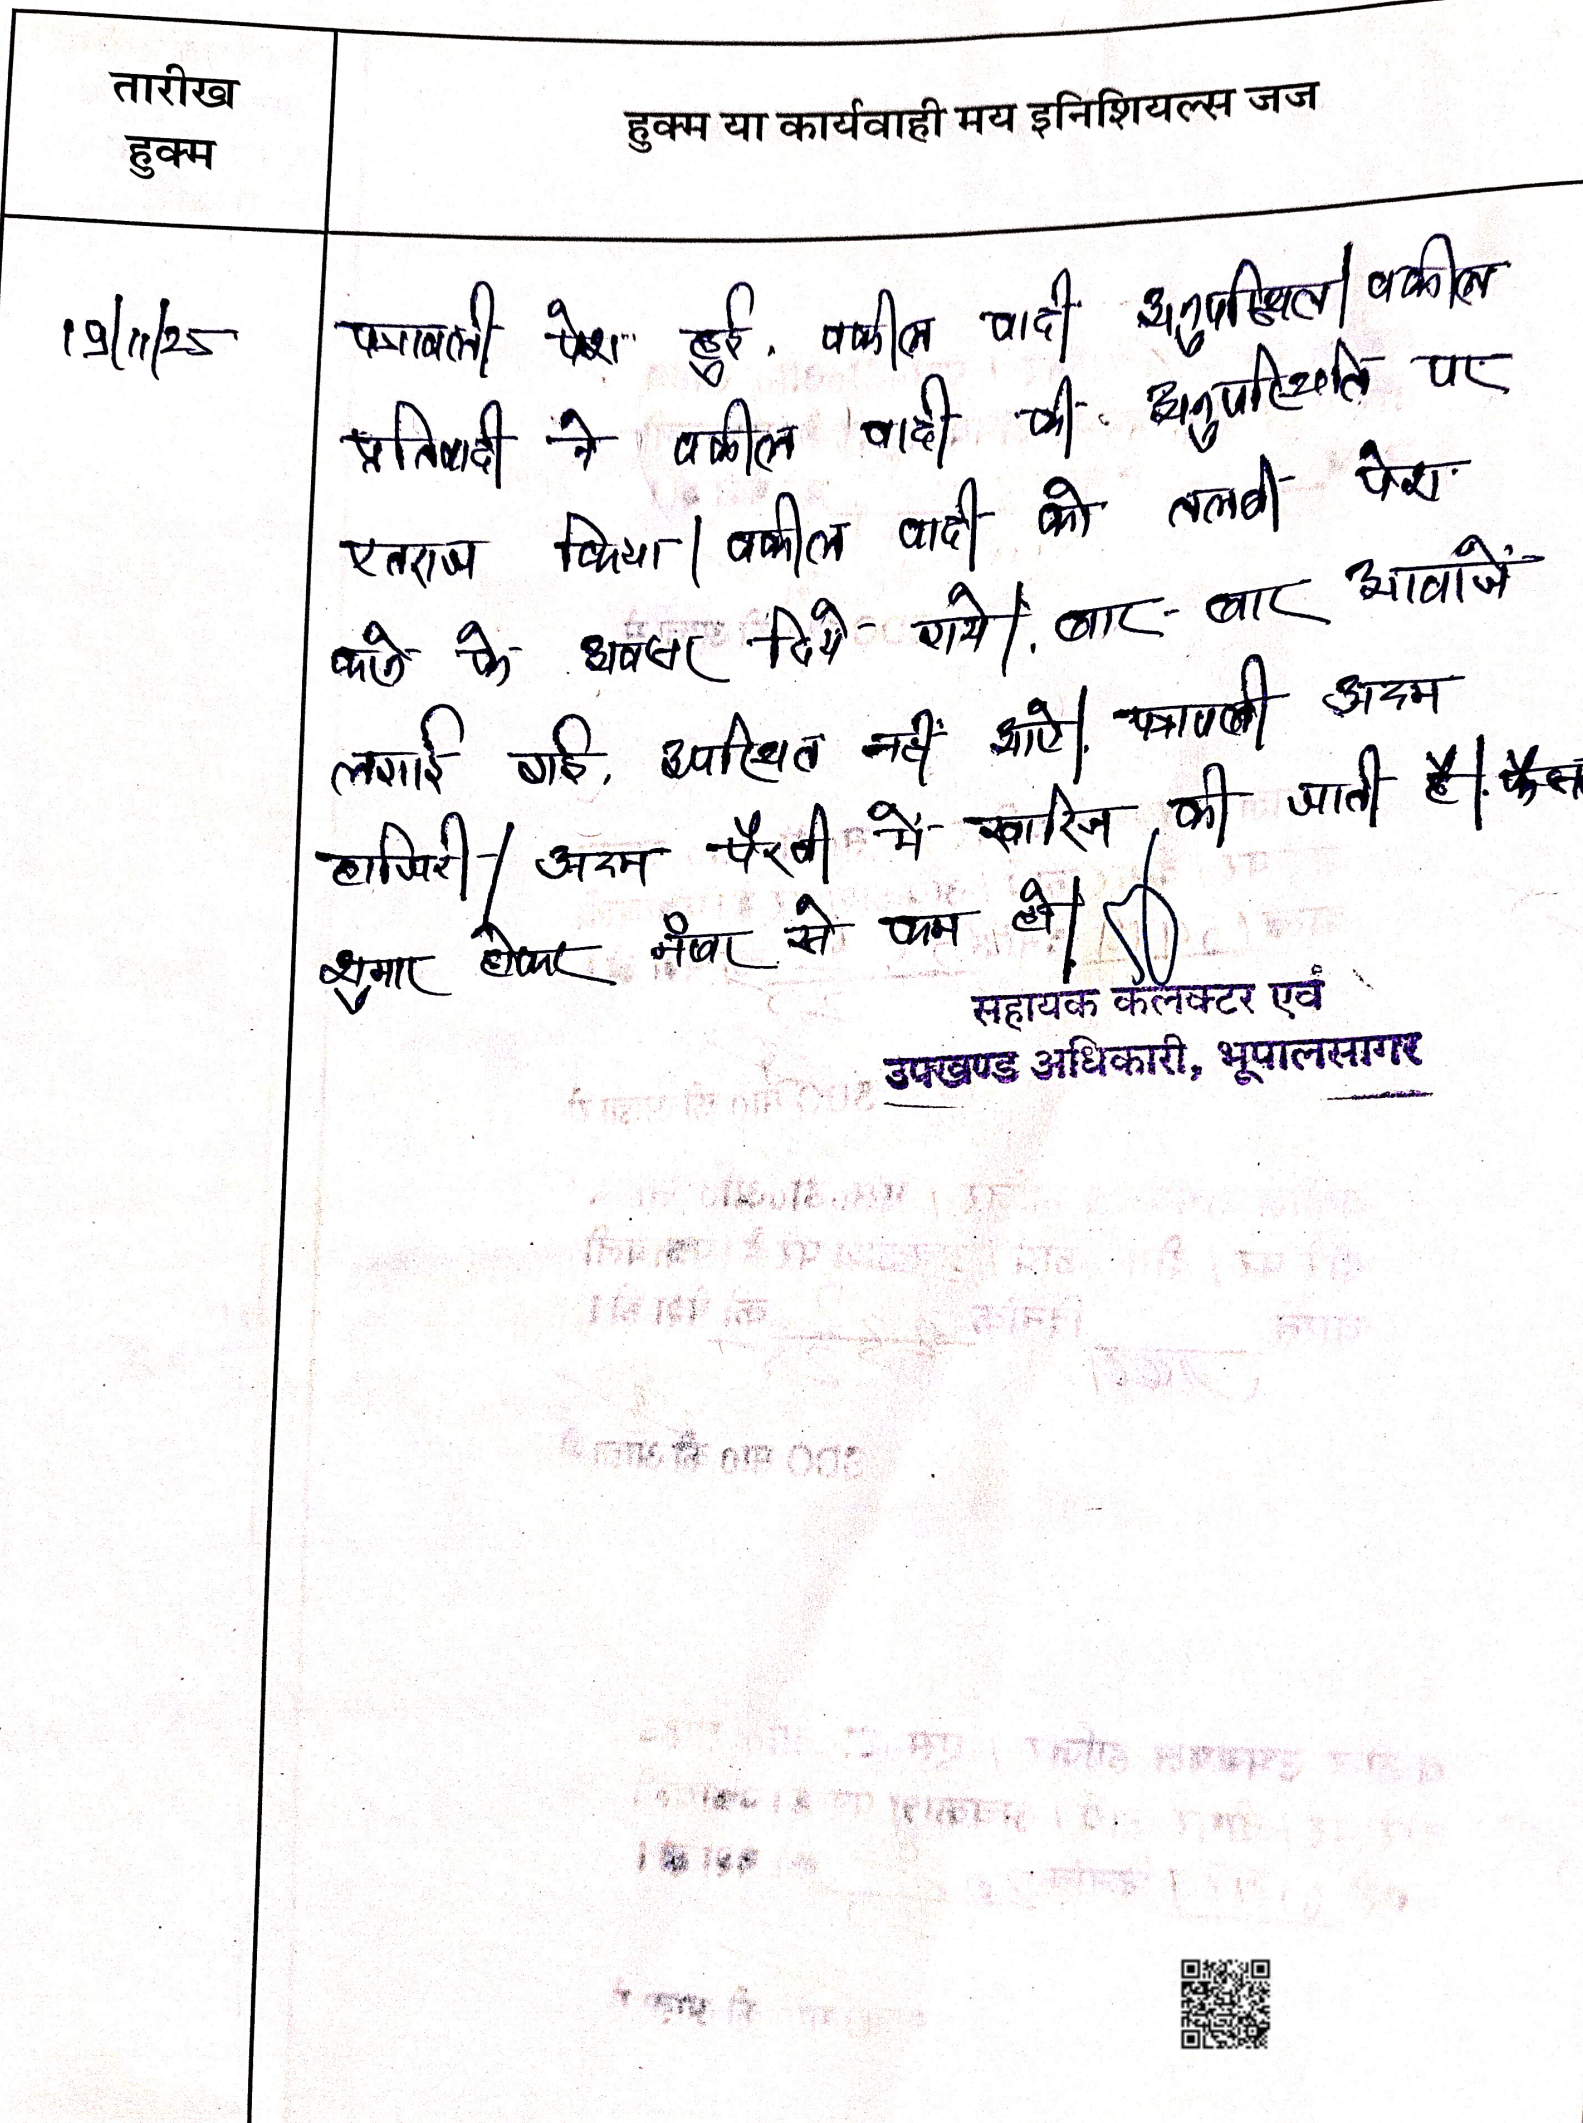 तारीख
हुक्म
हुक्म या कार्यवाही मय इनिशियल्स जज
19/11/25
पत्रावली पेश हुई. वकील वादी अनुपस्थित। वकील
प्रतिवादी ने वकील वादी की अनुपस्थिति पर
एतराज किया। वकील वादी को तलबी पेश
करने के अवसर दिये गये। बार-बार आवाजें
लगाई गई. उपस्थित नहीं आऐ। पत्रावली अदम
हाजिरी/अदम पैरवी में खारिज की जाती है। फैसल
शुमार होकर नंबर से कम हो।
सहायक कलक्टर एवं
उपखण्ड अधिकारी, भूपालसागर